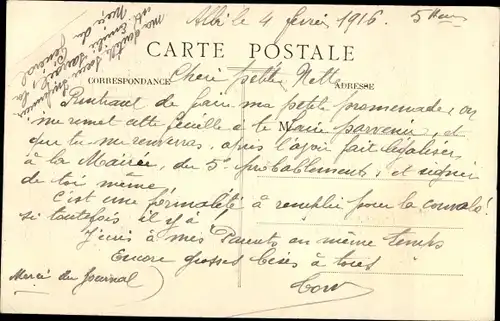 Albi le 4 février 1916. 5 heures
CARTE POSTALE
CORRESPONDANCE
ADRESSE
Chère petite Nette
Rentrant de faire ma petite promenade, on
me remet cette feuille à te faire parvenir, et
que tu me renverras, après l'avoir fait légaliser
à la Mairie, du 5e probablement, et signée
de toi même.
C'est une formalité à remplir pour la convalo!
si toutefois il y a!
J'écris à mes Parents en même temps
Encore grosses bises à tous
Merci du Journal